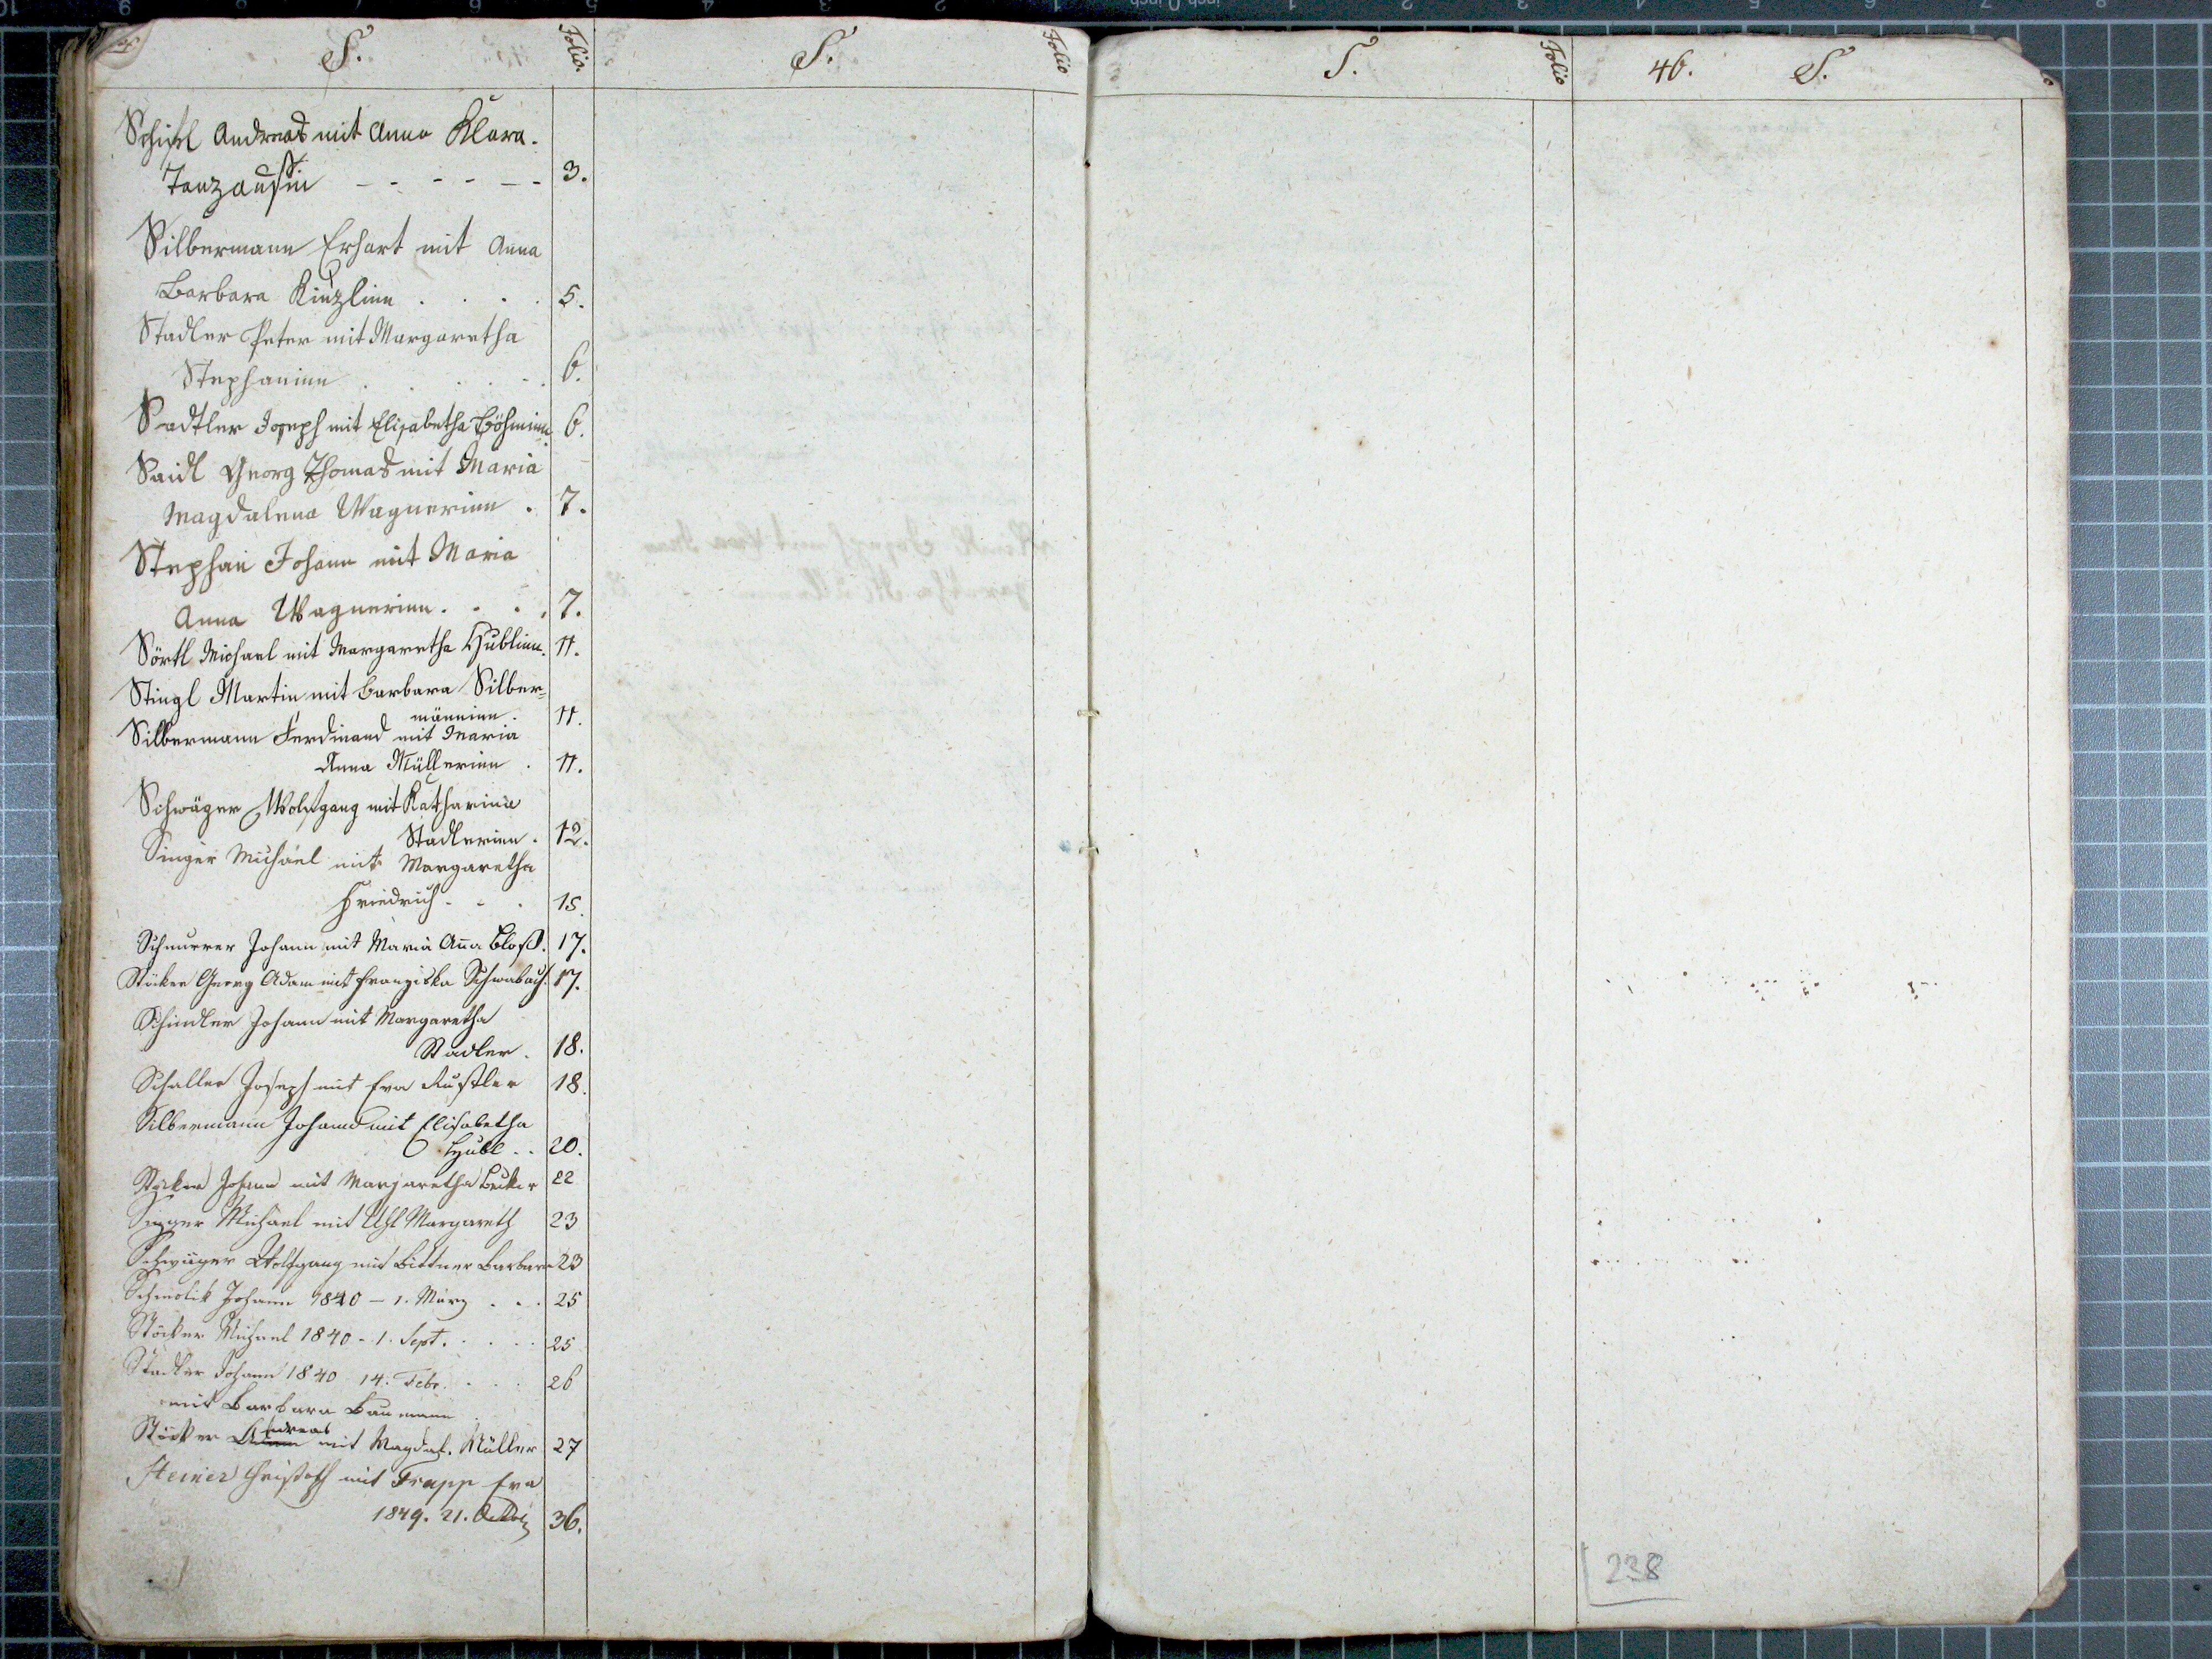 S.
Folio.
Schißl Andreas mit Anna Klara
Tanzausin - - - - - - 3.
Silbermann Erhart mit Anna
Barbara Künzlinn . . . . 5.
Stadler Peter mit Margaretha
Stephaninn . . . . . 6.
Sadtler Joseph mit Elisabetha Böhminn. 6.
Saidl Georg Thomas mit Maria
Magdalena Wagnerinn . 7.
Stephan Johann mit Maria
Anna Wagnerinn . . . . 7.
Sörtl Michael mit Margaretha Hüblinn. 11.
Stingl Martin mit Barbara Silber=
männinn. 11.
Silbermann Ferdinand mit Maria
Anna Müllerinn . 11.
Schwäger Wolfgang mit Katharina
Stadlerinn . 12.
Singer Michael mit Margaretha
Friedrich . . . 15.
Schnurrer Johann mit Maria Aña Bloß. 17.
Stöcker Georg Adam mit Franziska Schwabach. 17.
Schindler Johann mit Margaretha
Stadler . 18.
Schaller Joseph mit Eva Rustler 18.
Silbermann Johann mit Elisabetha
Hübl . . 20.
Stöcker Johann mit Margaretha 22
Singer Michael mit Uhl Margareth 23
Schwäger Wolfgang mit Bittner Barbara 23
Schmolik Johann 1840 – 1. März . . . 25
Stöcker Michael 1840 - 1. Sept. . . . . 25
Stadler Johann 1840 14. Febr. . . . 26
mit Barbara Baumann
Stöcker Andreas mit Magdal. Müller 27
Steiner Christoph mit Trapp Eva
1849. 21. 36.
S.
Folio
S.
Folio
46. S.
238